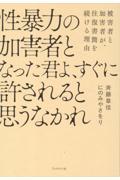 被害者と
加害者が、
往復書簡を
続ける理由
性暴力の
加害者と
なった君よ、すぐに
許されると
思うなかれ
斉藤章佳
にのみやさをり